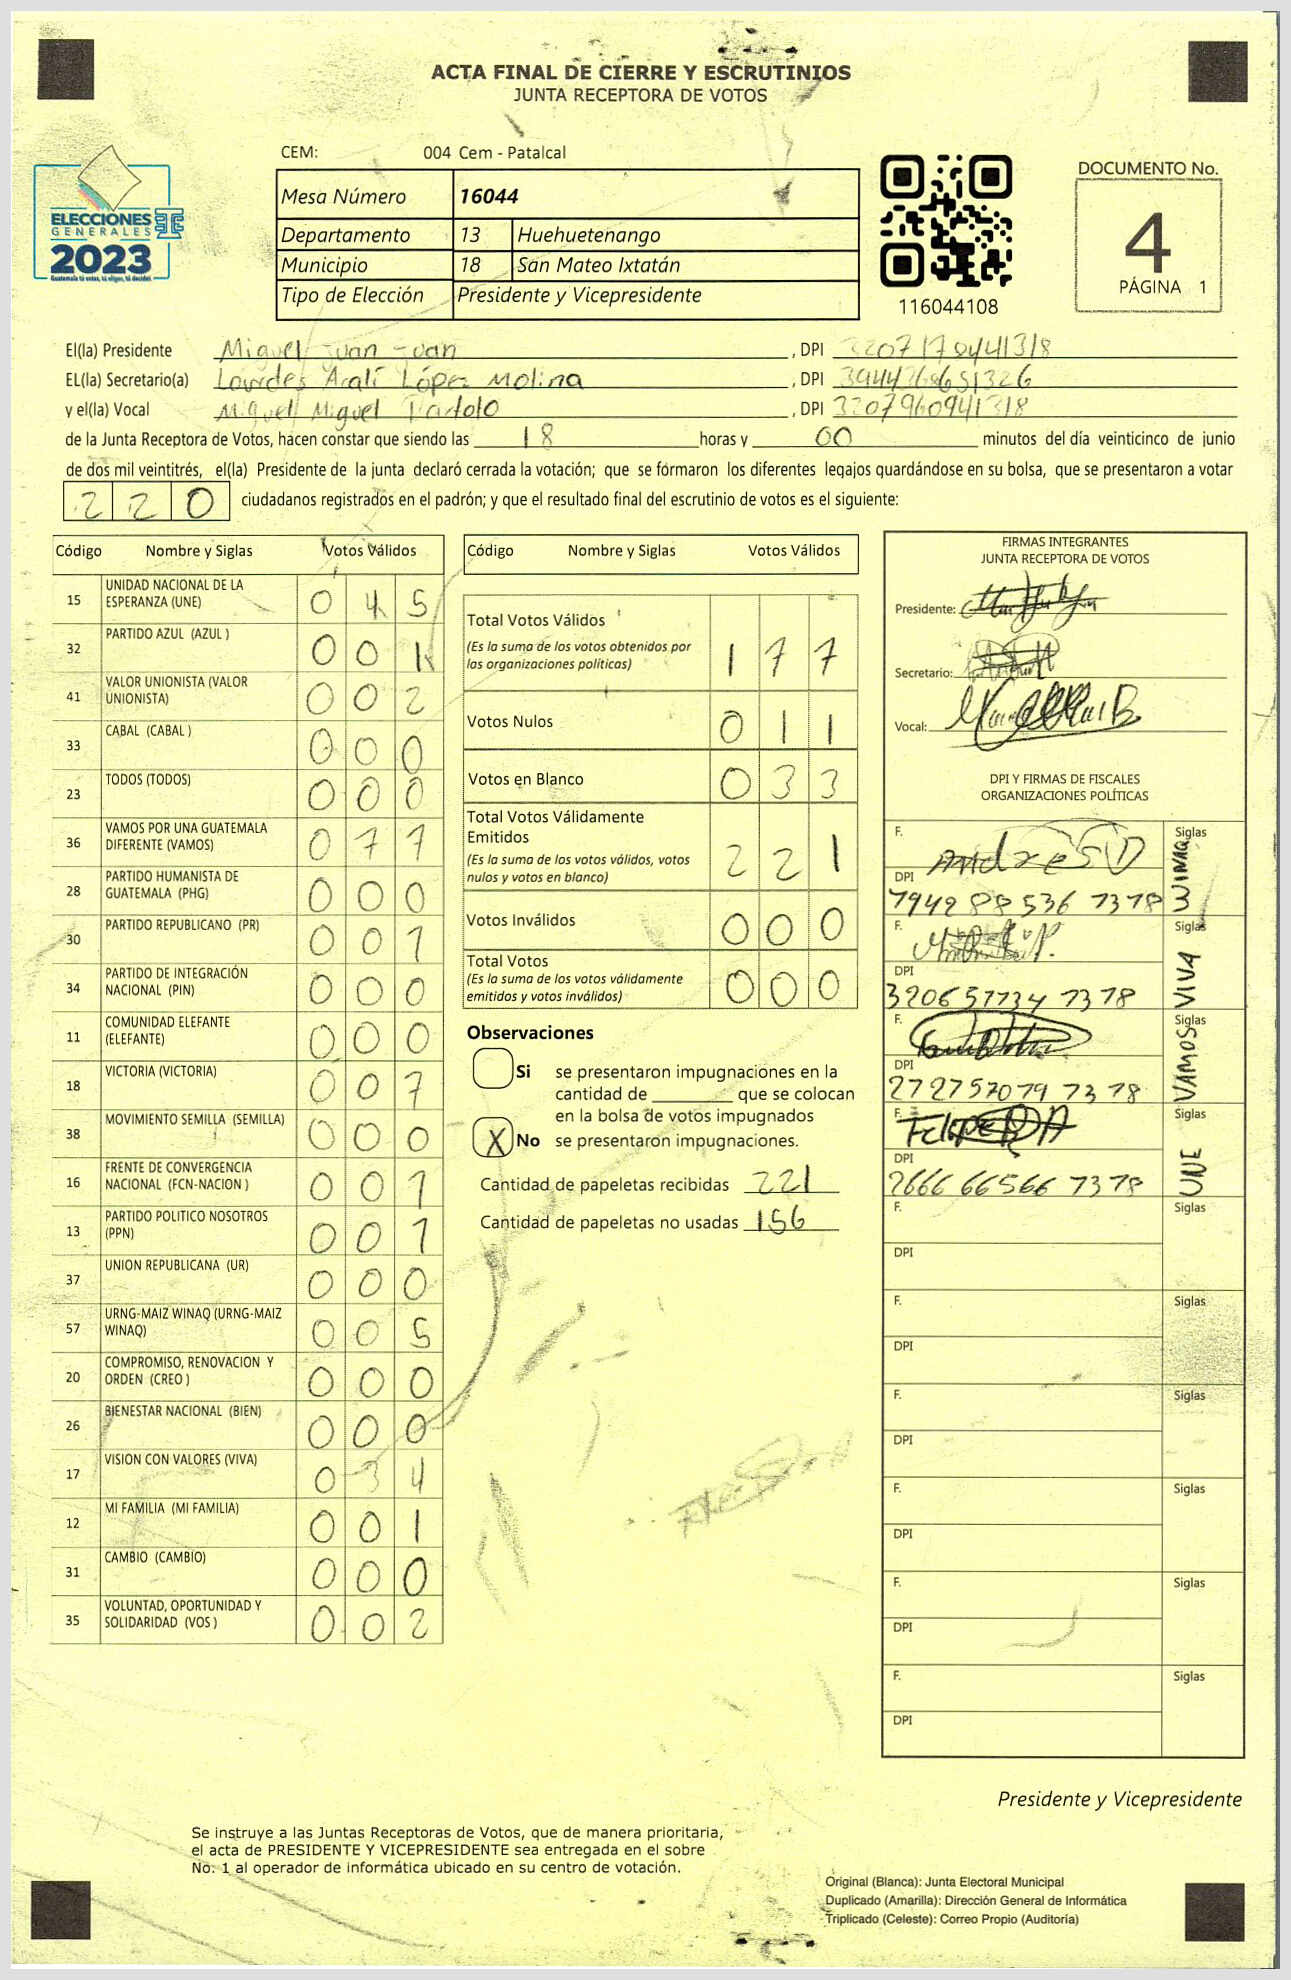 ACTA FINAL DE CIERRE Y ESCRUTINIOS
JUNTA RECEPTORA DE VOTOS
ELECCIONES
GENERALES
2023
Guatemala tú votas, tú eliges, tú decides
CEM: 004 Cem - Patalcal
Mesa Número 16044
Departamento 13 Huehuetenango
Municipio 18 San Mateo Ixtatán
Tipo de Elección Presidente y Vicepresidente
116044108
DOCUMENTO No.
4
PÁGINA 1
El(la) Presidente Miguel Juan Juan, DPI
EL(la) Secretario(a) Lourdes Aralí López Molina, DPI
y el(la) Vocal Miguel Miguel, DPI 3207960941318
de la Junta Receptora de Votos, hacen constar que siendo las 18 horas y 00 minutos del día veinticinco de junio
de dos mil veintitrés, el(la) Presidente de la junta declaró cerrada la votación; que se formaron los diferentes legajos quardándose en su bolsa, que se presentaron a votar
220 ciudadanos registrados en el padrón; y que el resultado final del escrutinio de votos es el siguiente:
Código Nombre y Siglas Votos Válidos
15 UNIDAD NACIONAL DE LA ESPERANZA (UNE) 0 4 5
32 PARTIDO AZUL (AZUL ) 0 0 1
41 VALOR UNIONISTA (VALOR UNIONISTA) 0 0 2
33 CABAL (CABAL ) 0 0 0
23 TODOS (TODOS) 0 0 0
36 VAMOS POR UNA GUATEMALA DIFERENTE (VAMOS) 0 7 7
28 PARTIDO HUMANISTA DE GUATEMALA (PHG) 0 0 0
30 PARTIDO REPUBLICANO (PR) 0 0 1
34 PARTIDO DE INTEGRACIÓN NACIONAL (PIN) 0 0 0
11 COMUNIDAD ELEFANTE (ELEFANTE) 0 0 0
18 VICTORIA (VICTORIA) 0 0 7
38 MOVIMIENTO SEMILLA (SEMILLA) 0 0 0
16 FRENTE DE CONVERGENCIA NACIONAL (FCN-NACION ) 0 0 1
13 PARTIDO POLITICO NOSOTROS (PPN) 0 0 1
37 UNION REPUBLICANA (UR) 0 0 0
57 URNG-MAIZ WINAQ (URNG-MAIZ WINAQ) 0 0 5
20 COMPROMISO, RENOVACION Y ORDEN (CREO ) 0 0 0
26 BIENESTAR NACIONAL (BIEN) 0 0 0
17 VISION CON VALORES (VIVA) 0 3 4
12 MI FAMILIA (MI FAMILIA) 0 0 1
31 CAMBIO (CAMBIO) 0 0 0
35 VOLUNTAD, OPORTUNIDAD Y SOLIDARIDAD (VOS ) 0 0 2
Código Nombre y Siglas Votos Válidos
Total Votos Válidos 1 7 7
(Es la suma de los votos obtenidos por
las organizaciones políticas)
Votos Nulos 0 1 1
Votos en Blanco 0 3 3
Total Votos Válidamente
Emitidos 2 2 1
(Es la suma de los votos válidos, votos
nulos y votos en blanco)
Votos Inválidos 0 0 0
Total Votos 0 0 0
(Es la suma de los votos válidamente
emitidos y votos inválidos)
Observaciones
Si se presentaron impugnaciones en la
cantidad de ________ que se colocan
en la bolsa de votos impugnados
X No se presentaron impugnaciones.
Cantidad de papeletas recibidas 221
Cantidad de papeletas no usadas 156
FIRMAS INTEGRANTES
JUNTA RECEPTORA DE VOTOS
Presidente:
Secretario:
Vocal:
DPI Y FIRMAS DE FISCALES
ORGANIZACIONES POLÍTICAS
F. Siglas WINAQ
DPI
F. Siglas VIVA
DPI
F. Siglas VAMOS
DPI
F. Siglas UNE
DPI 2666 66566 1318
F. Siglas
DPI
F. Siglas
DPI
F. Siglas
DPI
F. Siglas
DPI
F. Siglas
DPI
F. Siglas
DPI
Presidente y Vicepresidente
Se instruye a las Juntas Receptoras de Votos, que de manera prioritaria,
el acta de PRESIDENTE Y VICEPRESIDENTE sea entregada en el sobre
No. 1 al operador de informática ubicado en su centro de votación.
Original (Blanca): Junta Electoral Municipal
Duplicado (Amarilla): Dirección General de Informática
Triplicado (Celeste): Correo Propio (Auditoría)